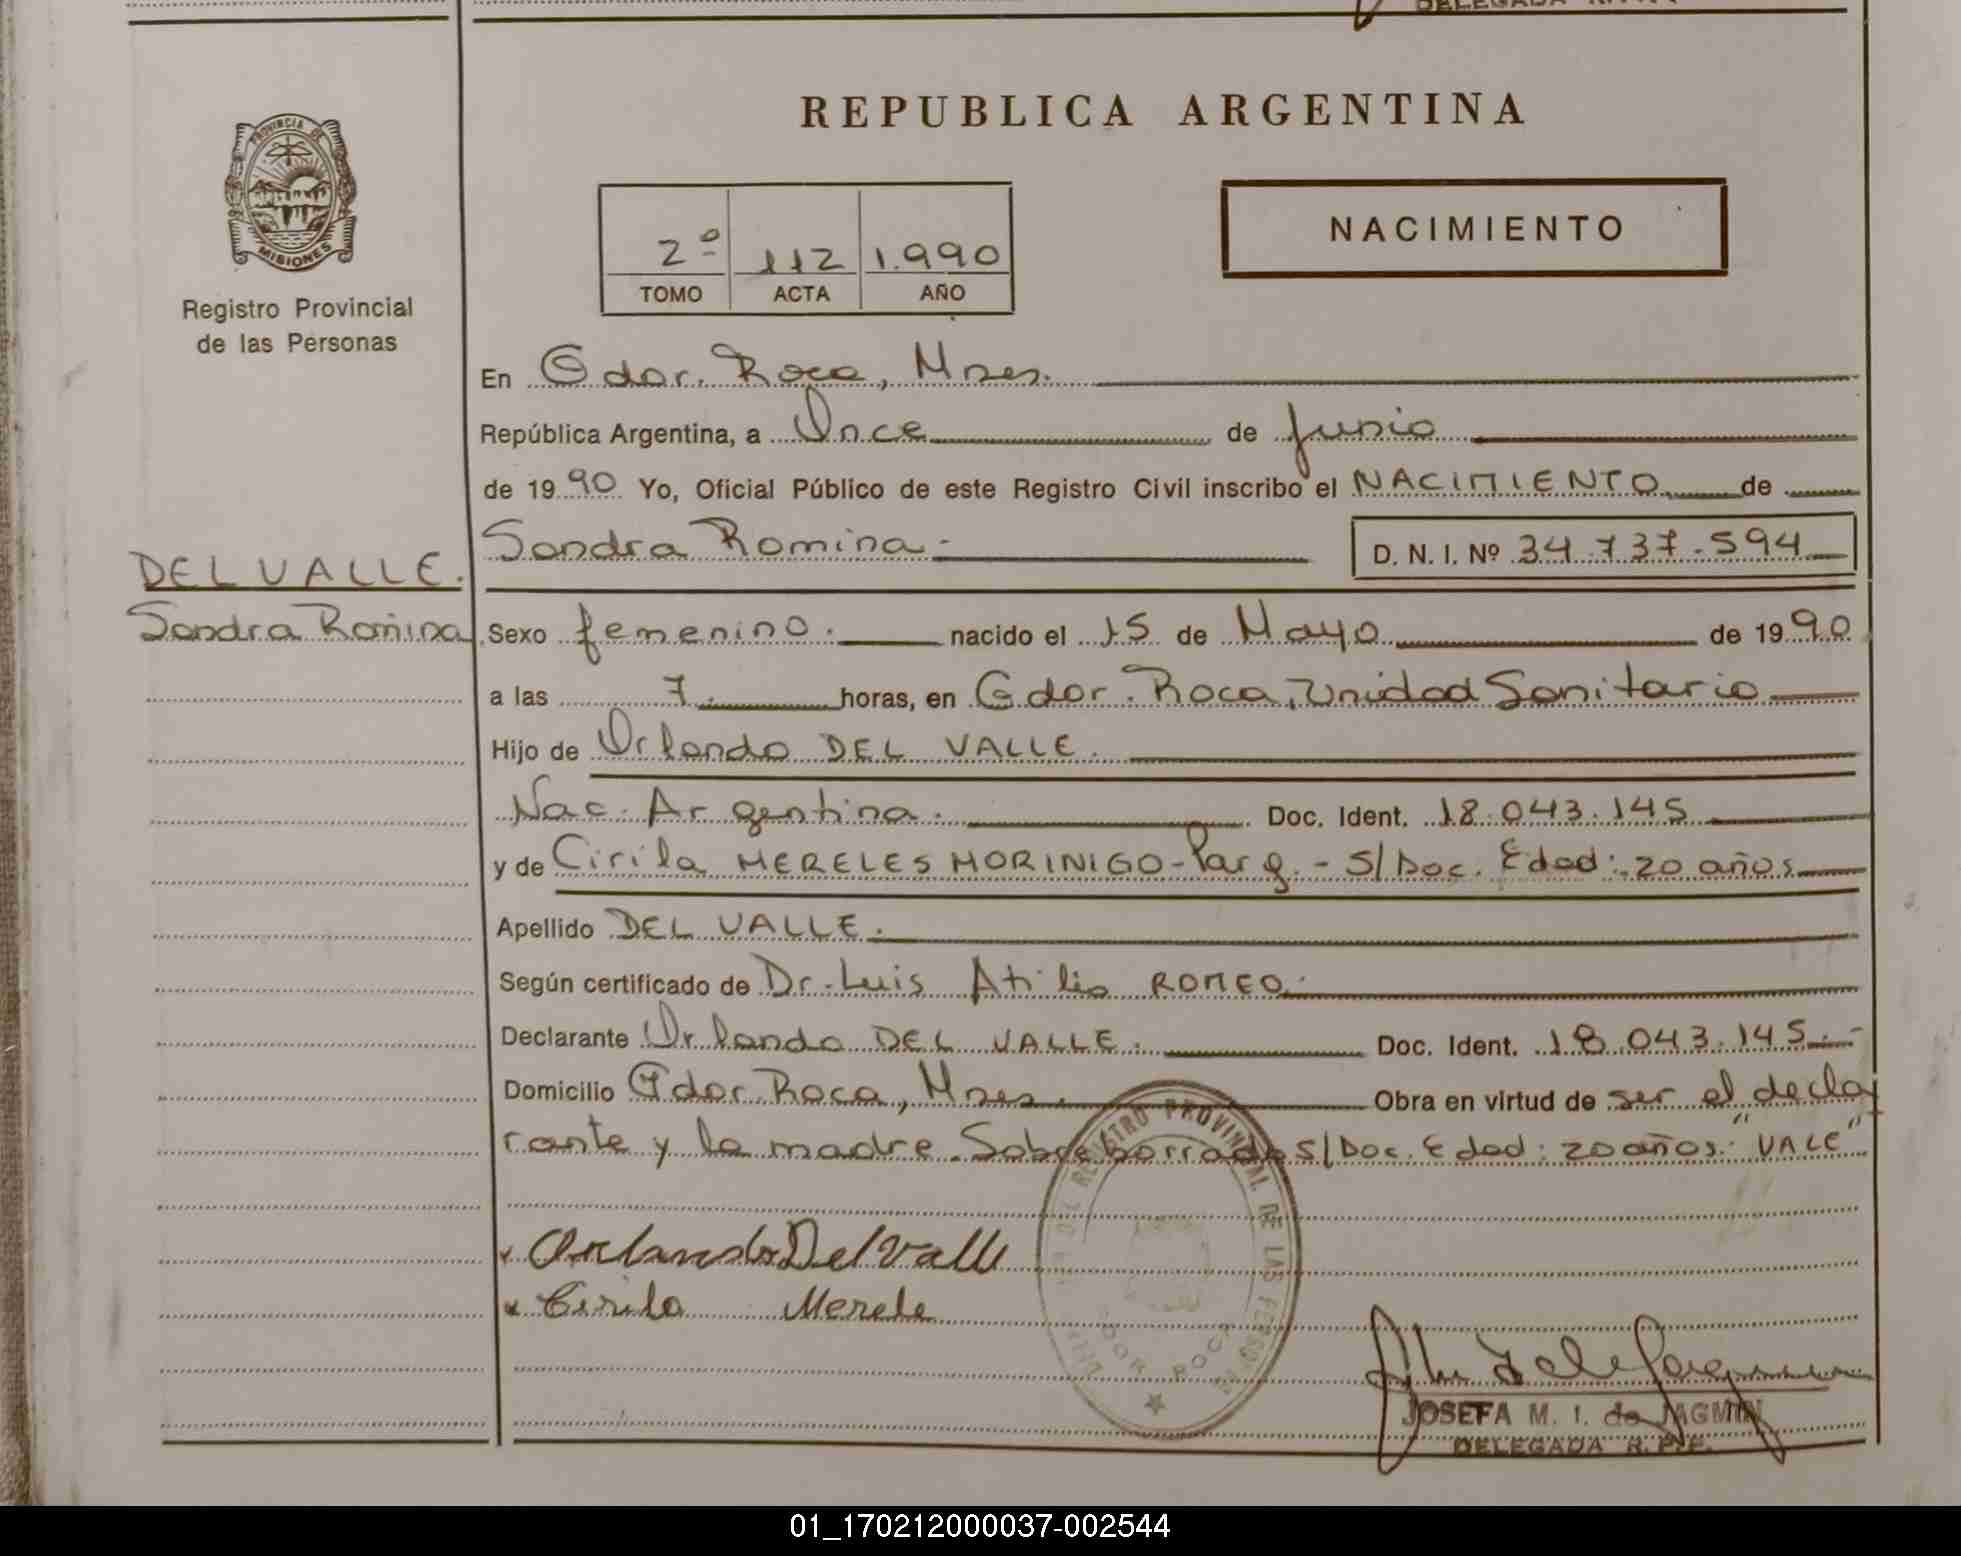 DELEGADA R.P.P.
REPUBLICA ARGENTINA
PROVINCIA DE
MISIONES
Registro Provincial
de las Personas
2º 112 1.990
TOMO ACTA AÑO
NACIMIENTO
En Gdor. Roca, Mnes.
República Argentina, a Once de Junio
de 1990 Yo, Oficial Público de este Registro Civil inscribo el NACIMIENTO de
Sandra Romina.- D. N. I. Nº 34.737.594
DEL VALLE.
Sandra Romina
Sexo femenino. nacido el 15 de Mayo de 1990
a las 7. horas, en Gdor. Roca, Unidad Sanitaria
Hijo de Orlando DEL VALLE.
Nac. Argentina. Doc. Ident. 18.043.145
y de Cirila MERELES MORINIGO-Parg.- S/Doc. Edad: 20 años
Apellido DEL VALLE.
Según certificado de Dr. Luis Atilio ROMEO.
Declarante Orlando DEL VALLE. Doc. Ident. 18.043.145.-
Domicilio Gdor. Roca, Mnes. Obra en virtud de ser el decla
rante y la madre. Sobreborrado S/Doc. Edad: 20 años: "VALE"
Orlando Del Valle
Cirila Merele
DEL REGISTRO PROVINCIAL DE LAS PERSONAS
GDOR ROCA
JOSEFA M. I. de JAGMIN
DELEGADA R.P.P.
01_170212000037-002544